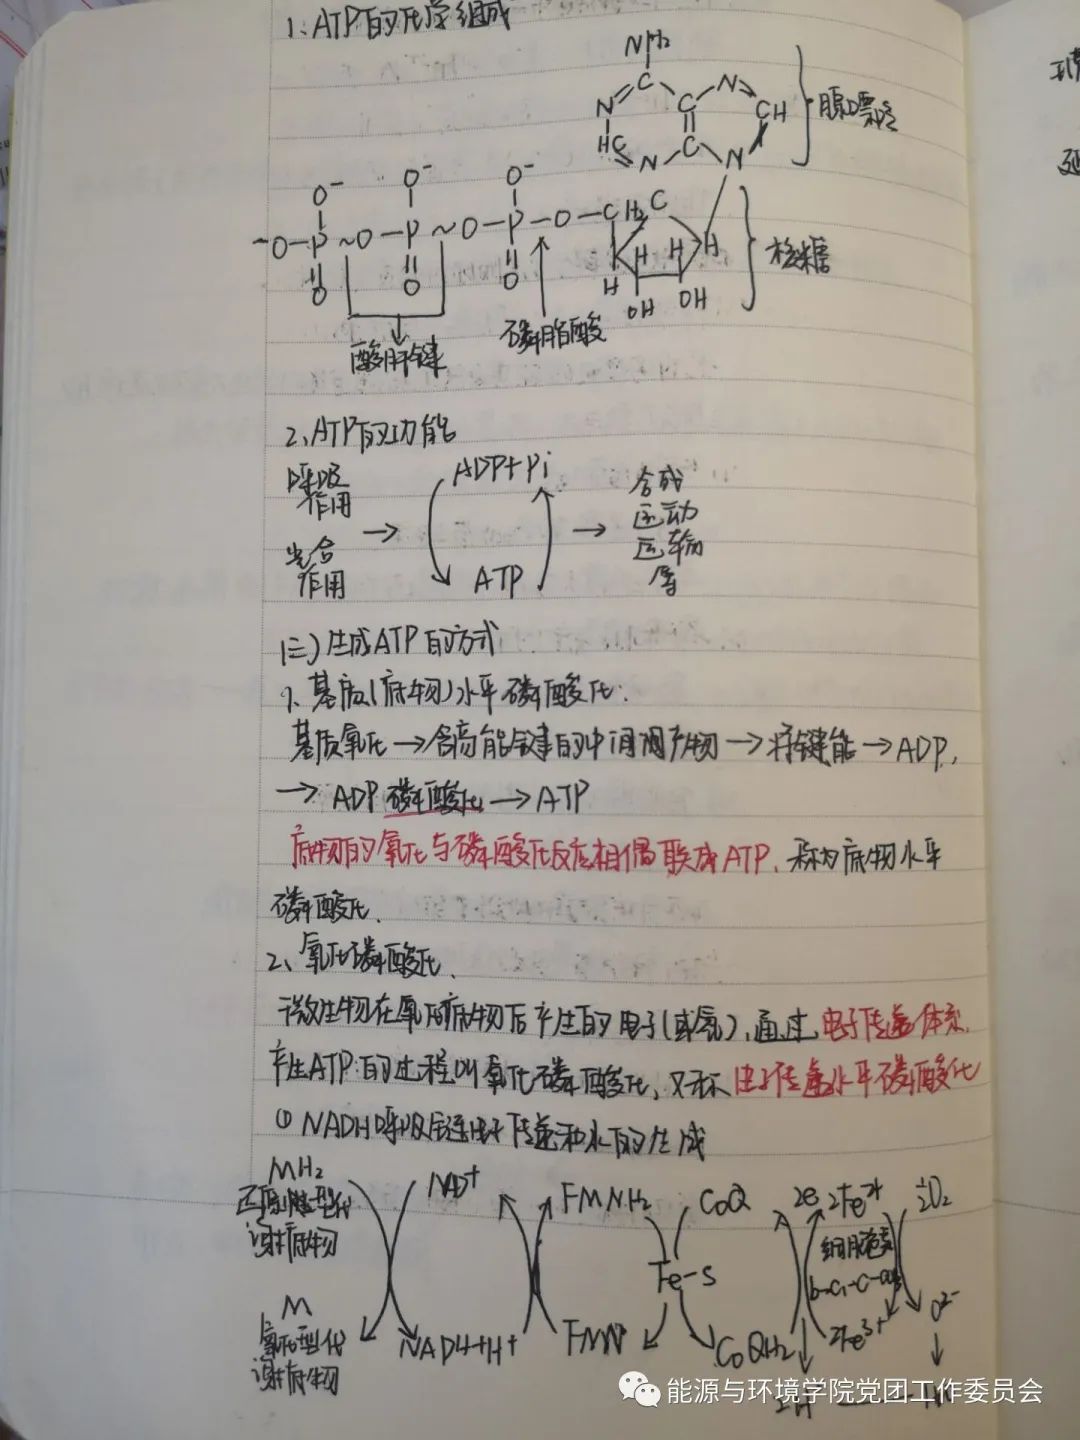 1、ATP的化学组成
NH₂
N C C N CH
HC N C N
腺嘌呤
O⁻ O⁻ O⁻
⁻O-P~O-P~O-P-O-CH₂ C
O O O
H H H H
OH OH
核糖
酸酐键
磷脂酸
2、ATP的功能
呼吸
作用
光合
作用
ADP+Pi
ATP
合成
运动
运输
等
(三)生成ATP的方式
1、基质(底物)水平磷酸化:
基质氧化→含高能键的中间产物→将键能→ADP,
→ADP磷酸化→ATP
底物的氧化与磷酸化反应相偶联成ATP,称为底物水平
磷酸化.
2、氧化磷酸化.
微生物在氧化底物后产生的电子(或氢),通过电子传递体系,
产生ATP的过程叫氧化磷酸化,又称电子传递水平磷酸化
① NADH呼吸链电子传递和水的生成
MH₂ NAD⁺ FMNH₂ CoQ 2e 2Fe²⁺ ½O₂
还原型代
谢底物
细胞色素
Fe-S
b-c₁-c-aa₃
M NADH+H⁺ FMN CoQH₂ 2Fe³⁺ O²⁻
氧化型代
谢底物
能源与环境学院党团工作委员会